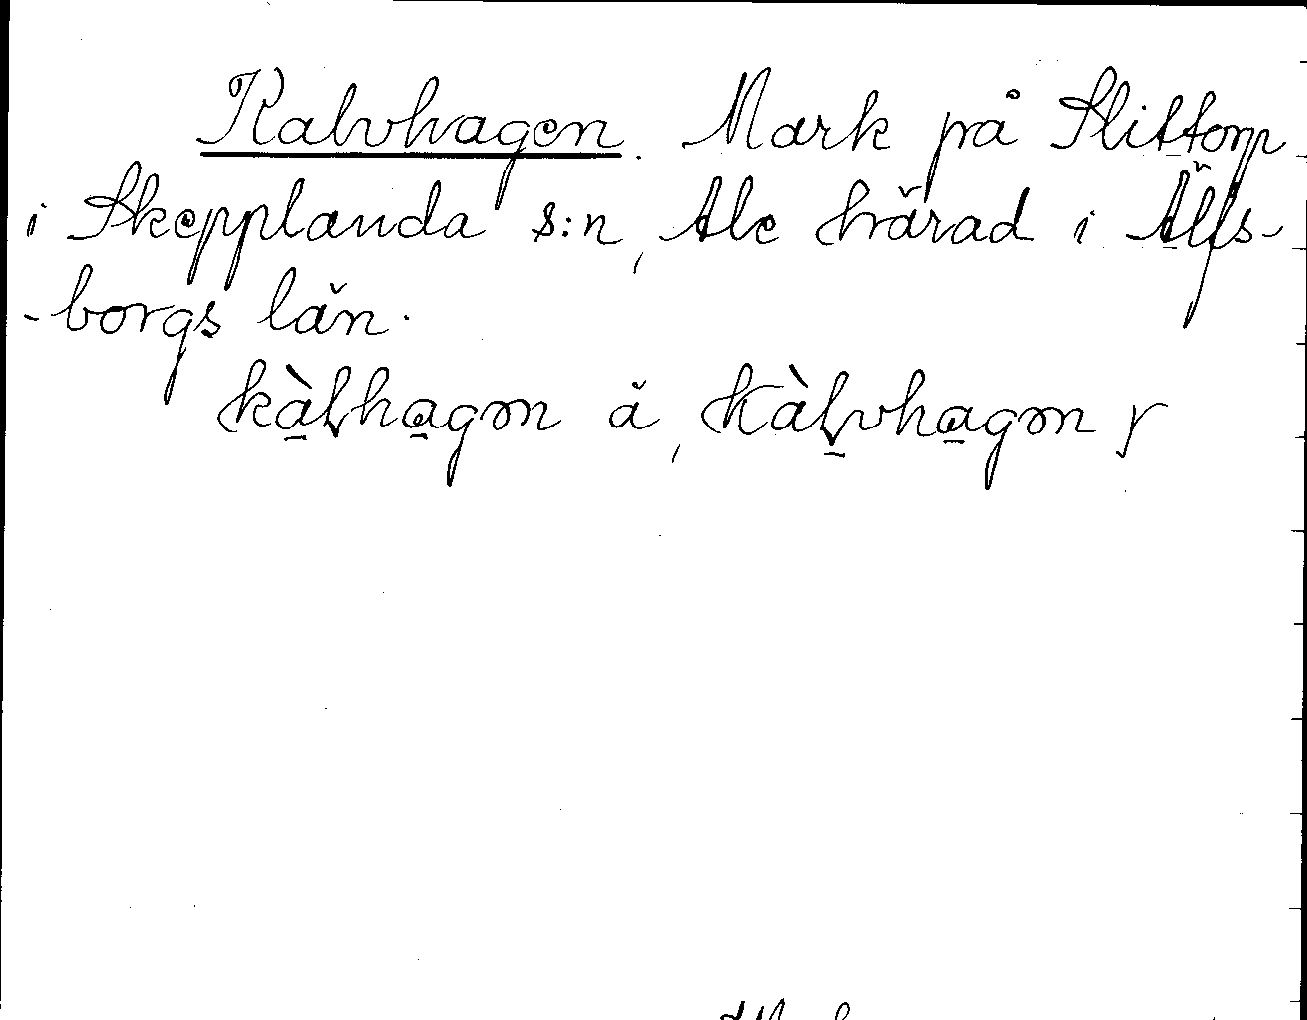 Kalvhagen. Mark på Slittorp
i Skepplanda s:n, Ale härad i Älfs-
-borgs län.
kàlhagən ä, kàlvhagən